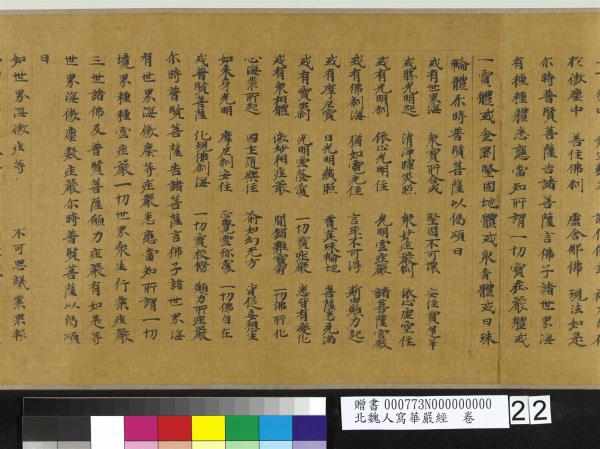 於微塵中　善住佛刹　盧舍那佛　現法如是
尒時普賢菩薩告諸菩薩言佛子諸世界海
有種種體悉應當知所謂一切寶莊嚴體或
一寶體或金剛堅固地體或衆香體或日珠
輪體尒時普賢菩薩以偈頌曰
或有世界海　衆寶所合成　堅固不可壞　安住寶蓮華
或勝光明起　清淨曜炎照　衆妙莊嚴刹　依止虛空住
或有光明刹　依止光明住　光明雲莊嚴　諸菩薩宮殿
或有佛刹海　猶如電光住　言辭不可得　斯由願力起
或有摩尼寶　日光明藏照　珠輪地　菩薩悉充滿
或有寶炎刹　光明雲蔭覆　一切寶莊嚴　悉皆有變化
或有衆相體　微妙相莊嚴　間錯雜寶鬘　一切佛所化
心海業所起　隨樂住　喻如幻无方　皆從妄想生
如來身光明　摩尼刹安住　聲雲弥覆　一切佛自在
或普賢菩薩　化現佛刹海　一切寶挍飾　願力所莊嚴
尒時普賢菩薩告諸菩薩言佛子諸世界海
有世界海微塵等莊嚴悉應當知所謂一切
境界種種雲莊嚴一切世界衆生行業莊嚴
三世諸佛及普賢菩薩願力莊嚴有如是等
世界海微塵數莊嚴尒時普賢菩薩以偈頌
曰
如世界海微塵等　不可思議業果報
贈書 000773N000000000
北魏人寫華嚴經 卷
22